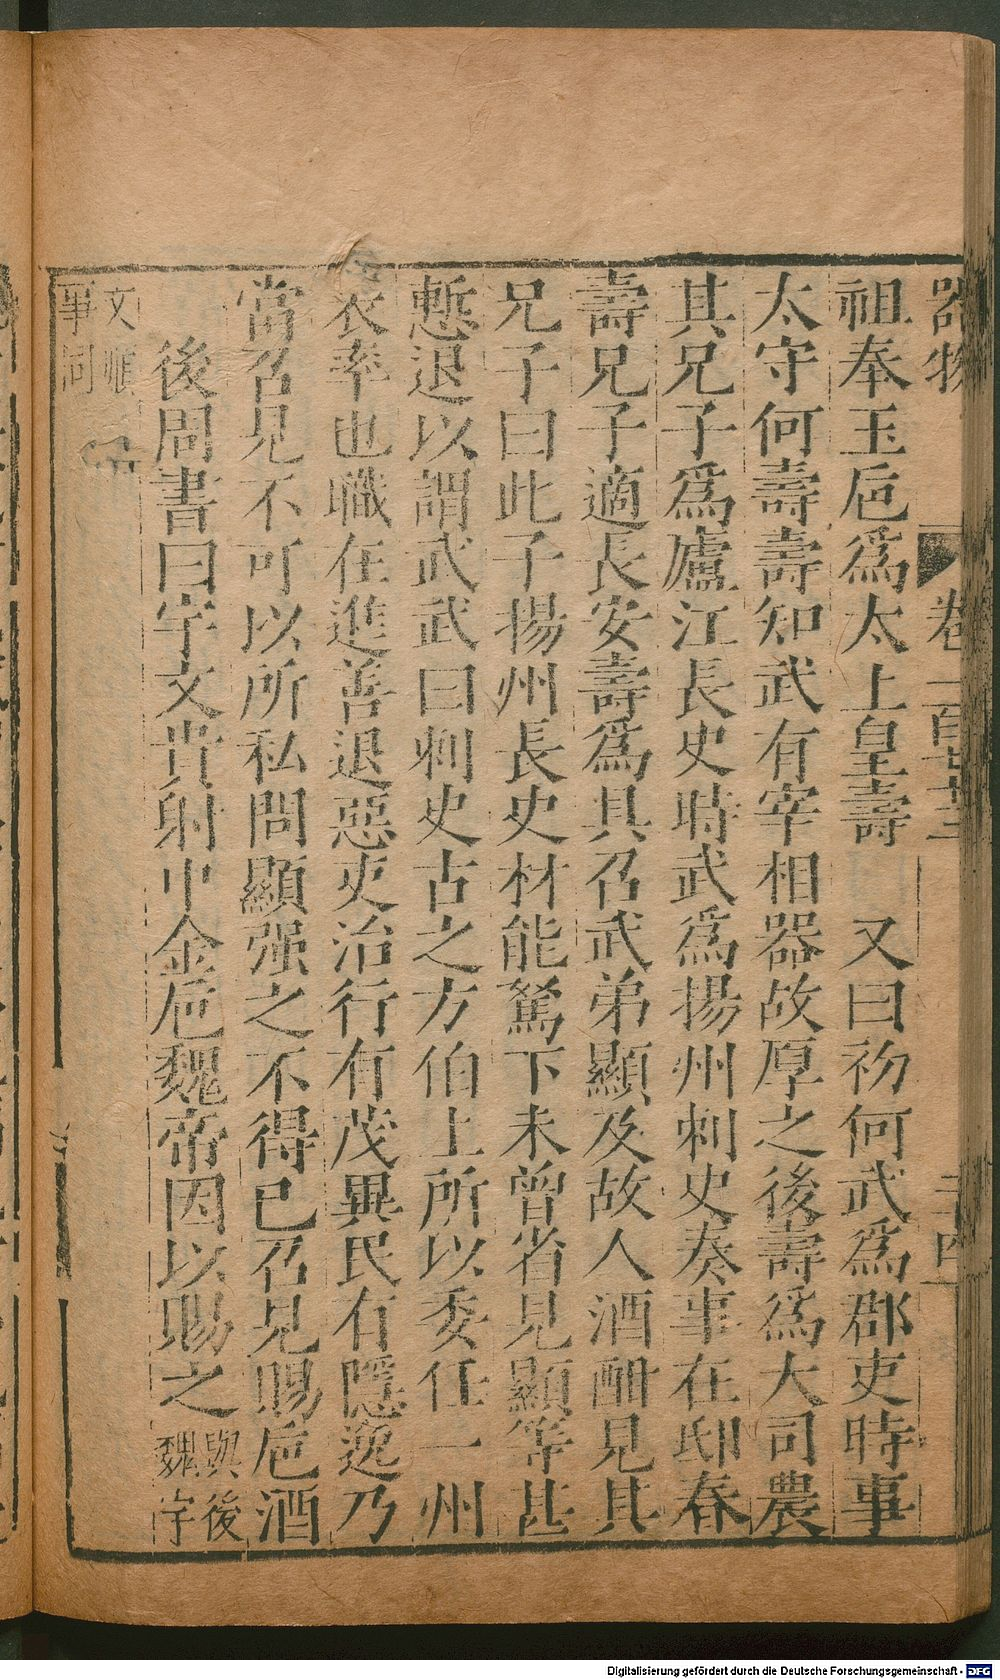 器物 卷一百廿三 二十四
祖奉玉巵爲太上皇壽 又曰初何武爲郡吏時事
太守何壽壽知武有宰相器故厚之後壽爲大司農
其兄子爲廬江長史時武爲揚州刺史奏事在邸春
壽兄子適長安壽爲具召武弟顯及故人酒酣見其
兄子曰此子揚州長史材能駑下未曾省見顯等甚
慙退以謂武武曰刺史古之方伯上所以委任一州
表率也職在進善退惡吏治行有茂異民有隱逸乃
當召見不可以所私問顯强之不得已召見賜巵酒
後周書曰宇文貴射中金巵魏帝因以賜之與後魏宇
文順事同
Digitalisierung gefördert durch die Deutsche Forschungsgemeinschaft - DFG